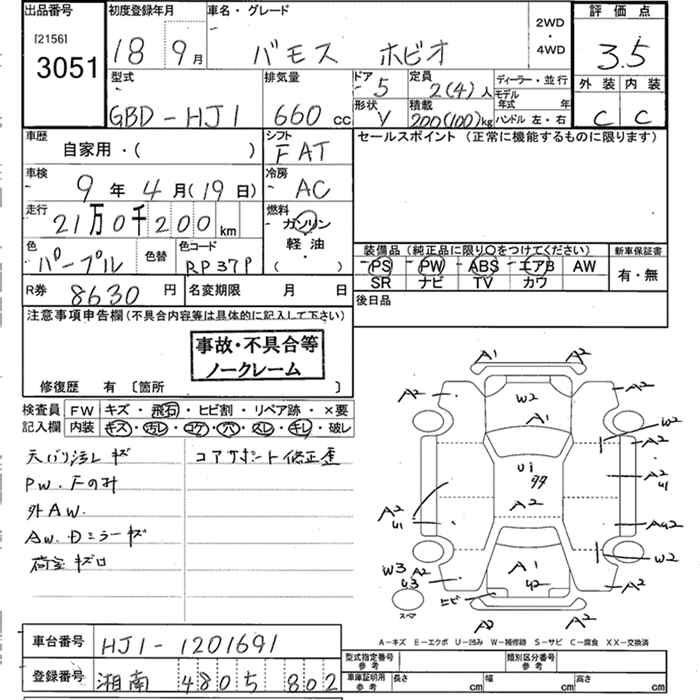 出品番号
[2156]
3051
初度登録年月
18 9月
車名・グレード
バモス ホビオ
2WD
・
4WD
評価点
3.5
外装 内装
C C
型式
GBD-HJ1
排気量
660 cc
ドア 5
形状 V
定員 2(4)人
積載 200(100)kg
ディーラー・並行
モデル年式 年
ハンドル 左・右
車歴
自家用・( )
シフト
FAT
車検
9年4月(19日)
冷房
AC
走行
21万0千200km
燃料
ガソリン
軽油・
( )
色
パープル
色替
色コード
RP37P
R券 8630円
名変期限 月 日
セールスポイント (正常に機能するものに限ります)
装備品(純正品に限り○をつけてください)
PS PW ABS エアB AW
SR ナビ TV カワ
新車保証書
有・無
後日品
注意事項申告欄(不具合内容等は具体的に記入して下さい)
事故・不具合等
ノークレーム
修復歴 有〔箇所 〕
検査員 FW キズ・飛石・ヒビ割・リペア跡・×要
記入欄 内装 キズ・汚レ・コゲ・穴・スレ・キレ・破レ
PW.Fのみ
外AW.
コアサポート修正歪
A1 A2
A2 W2 A2
A1 W2
A2
U1
99
A2
A2 U1
A2 U1
AU2
W3 A2 U3
A1 U2
W2
ヒビ
A2
スペア
A2 A2
A-キズ E-エクボ U-凹み W-補修跡 S-サビ C-腐食 XX-交換済
車台番号
HJ1-1201691
登録番号
湘南 480 5 802
型式指定番号 参考
類別区分番号 参考
車庫証明用 参考 長さ cm 幅 cm 高さ cm